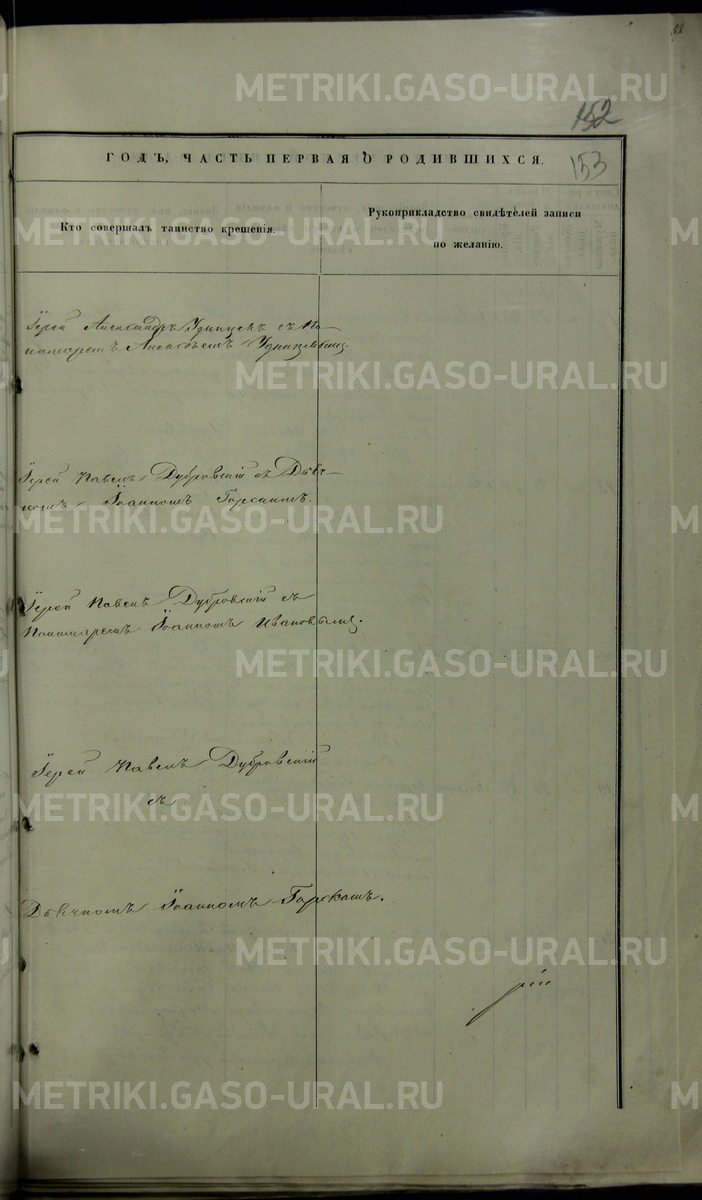 152
ГОДЪ, ЧАСТЬ ПЕРВАЯ О РОДИВШИХСЯ.
153
Кто совершалъ таинство крещенія.
Рукоприкладство свидѣтелей записи
по желанію.
Іерей Александръ Удинцевъ съ По-
номаремъ Удинцевымъ.
Іерей Павелъ Дубровскій съ Дьяч-
комъ Іоанномъ Горскимъ.
Іерей Павелъ Дубровскій съ
Пономаремъ Іоанномъ Ивановымъ.
Іерей Павелъ Дубровскій
съ
Дьячкомъ Іоанномъ Горскимъ.
METRIKI.GASO-URAL.RU
METRIKI.GASO-URAL.RU
METRIKI.GASO-URAL.RU
METRIKI.GASO-URAL.RU
METRIKI.GASO-URAL.RU
METRIKI.GASO-URAL.RU
METRIKI.GASO-URAL.RU
METRIKI.GASO-URAL.RU